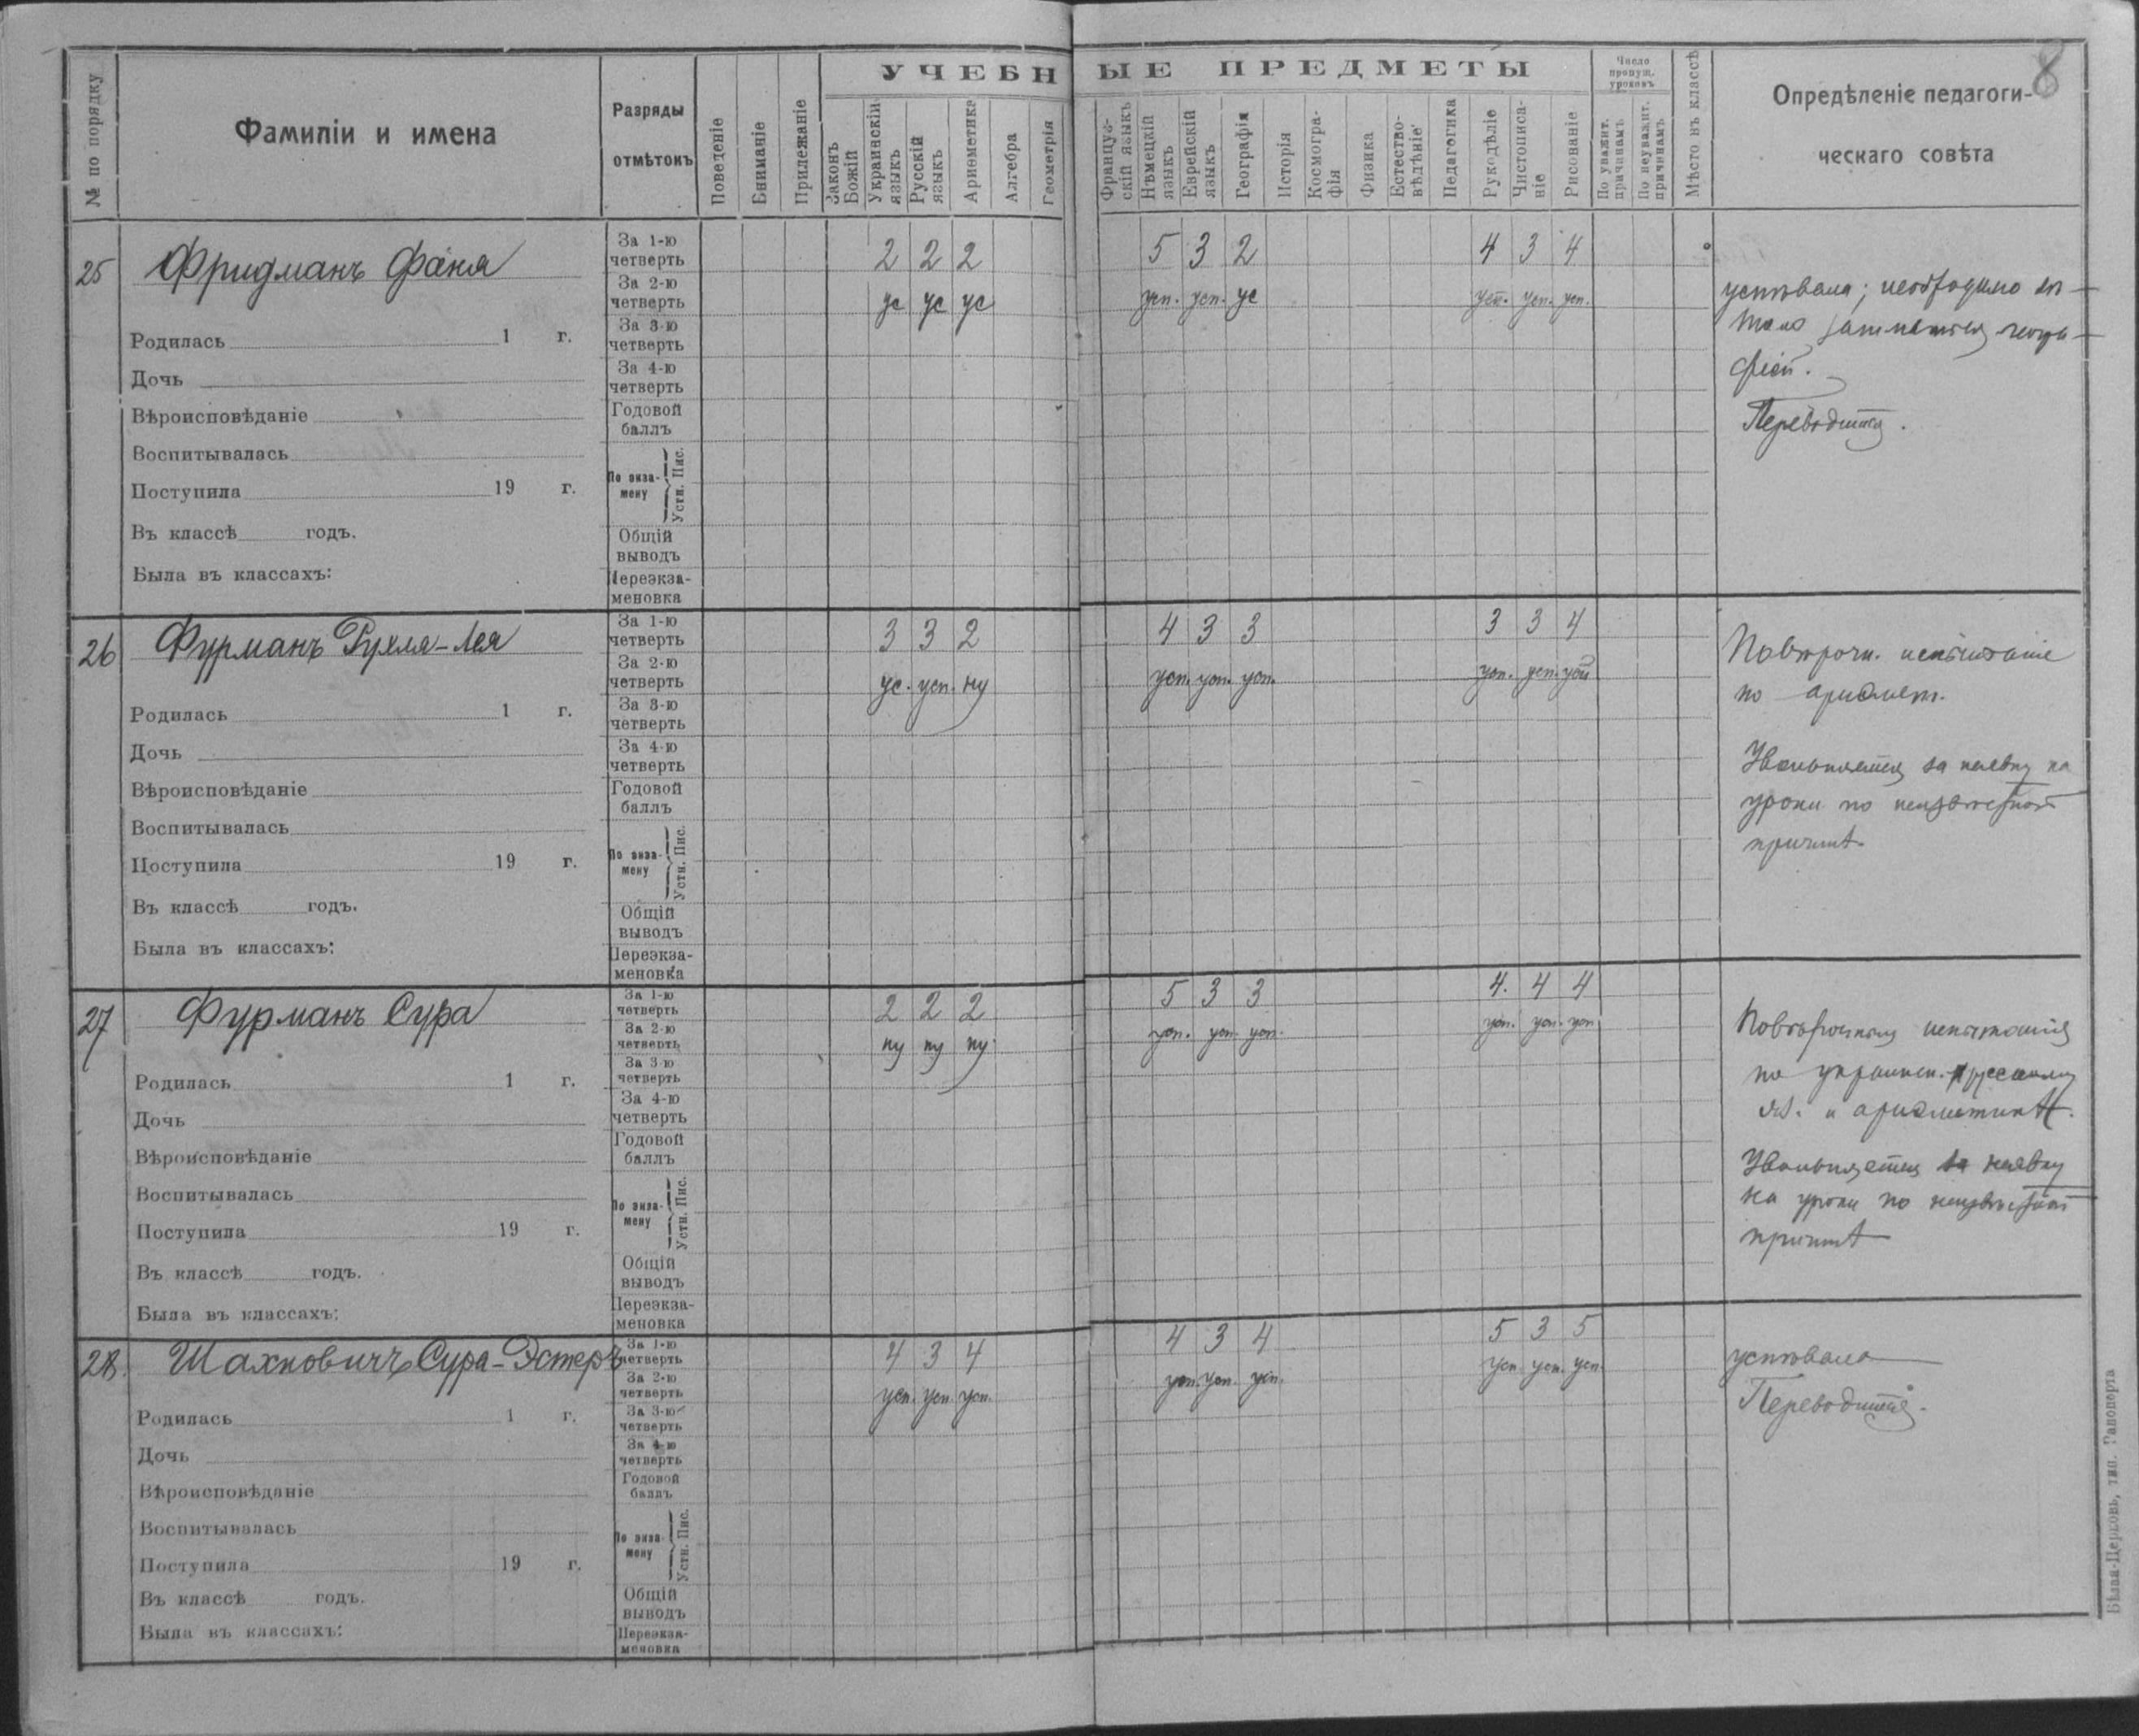 8
№ по порядку
Фамиліи и имена
Разряды
отмѣтокъ
Поведеніе
Вниманіе
Прилежаніе
УЧЕБНЫЕ ПРЕДМЕТЫ
Законъ Божій
Украинскій языкъ
Русскій языкъ
Ариѳметика
Алгебра
Геометрія
Француз-
скій языкъ
Нѣмецкій языкъ
Еврейскій языкъ
Географія
Исторія
Космогра-
фія
Физика
Естество-
вѣдѣніе
Педагогика
Рукодѣліе
Чистописа-
ніе
Рисованіе
Число
пропущ.
уроковъ
По уважит. причинамъ
По неуважит. причинамъ
Мѣсто въ классѣ
Опредѣленіе педагоги-
ческаго совѣта
25 Фридманъ Фаня
За 1-ю четверть 2 2 2 5 3 2 4 3 4
За 2-ю четверть ус ус ус усп. усп. ус усп. усп. усп.
За 3-ю четверть
За 4-ю четверть
Годовой баллъ
По экза-
мену Устн. Пис.
Общій выводъ
Переэкза-
меновка
Родилась 1 г.
Дочь
Вѣроисповѣданіе
Воспитывалась
Поступила 19 г.
Въ классѣ годъ.
Была въ классахъ:
успѣвала; необходимо
фіей.
Переводится.
26 Фурманъ Рухля-Лея
За 1-ю четверть 3 3 2 4 3 3 3 3 4
За 2-ю четверть ус. усп. ну усп. усп. усп. усп. усп. усп
За 3-ю четверть
За 4-ю четверть
Годовой баллъ
По экза-
мену Устн. Пис.
Общій выводъ
Переэкза-
меновка
Родилась 1 г.
Дочь
Вѣроисповѣданіе
Воспитывалась
Поступила 19 г.
Въ классѣ годъ.
Была въ классахъ:
Повторочн. испытаніе
по ариѳмет.
Увольняется за неявку на
уроки по неизвѣстной
причинѣ
27 Фурманъ Сура
За 1-ю четверть 2 2 2 5 3 3 4. 4 4
За 2-ю четверть ну ну ну усп. усп усп. усп. усп. усп
За 3-ю четверть
За 4-ю четверть
Годовой баллъ
По экза-
мену Устн. Пис.
Общій выводъ
Переэкза-
меновка
Родилась 1 г.
Дочь
Вѣроисповѣданіе
Воспитывалась
Поступила 19 г.
Въ классѣ годъ.
Была въ классахъ:
испытанія
по украинск. русскому
яз. и ариѳметикѣ.
Увольняется за неявку
на уроки по неизвѣстной
причинѣ
28. Шахновичъ Сура-Эстеръ
За 1-ю четверть 4 3 4 4 3 4 5 3 5
За 2-ю четверть усп. усп. усп. усп. усп. усп. усп. усп. усп.
За 3-ю четверть
За 4-ю четверть
Годовой баллъ
По экза-
мену Устн. Пис.
Общій выводъ
Переэкза-
меновка
Родилась 1 г.
Дочь
Вѣроисповѣданіе
Воспитывалась
Поступила 19 г.
Въ классѣ годъ.
Была въ классахъ:
успѣвала
Переводится.
Бѣлая-Церковь, тип. Рапопорта